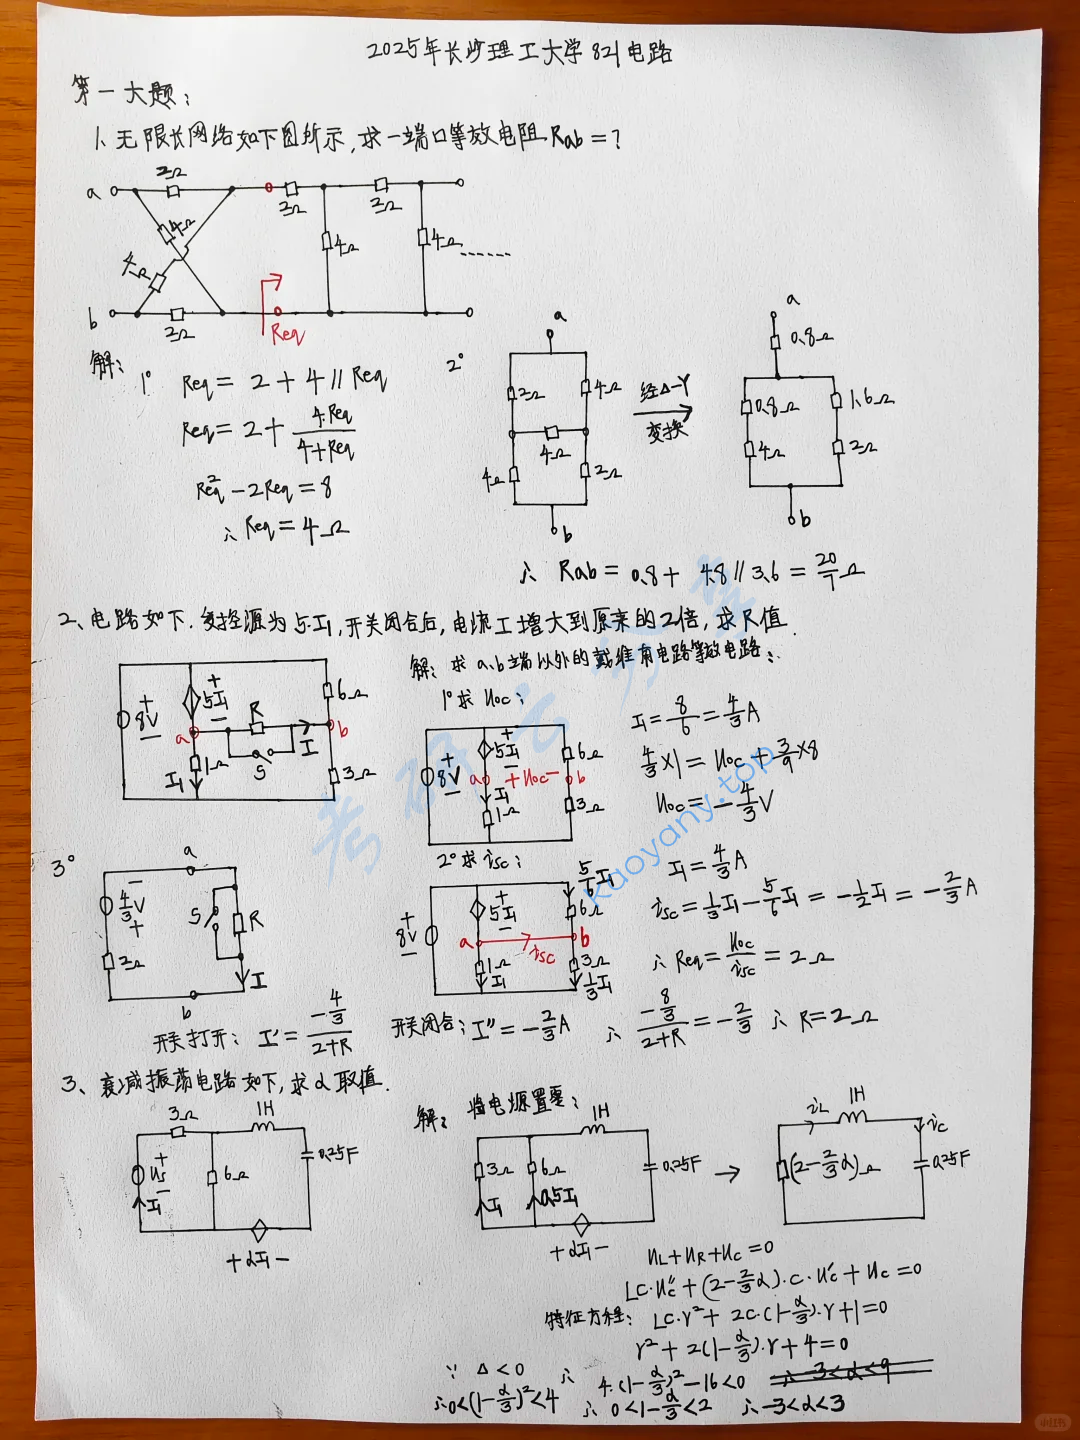 2025年长沙理工大学821电路
第一大题:
1、无限长网络如下图所示,求一端口等效电阻Rab=?
a
2Ω
2Ω
2Ω
4Ω
4Ω
4Ω
4Ω
......
b
2Ω
Req
解:
1° Req = 2 + 4 // Req
Req = 2 + 4·Req/(4+Req)
Req² - 2Req = 8
∴ Req = 4Ω
2°
a
2Ω
4Ω
4Ω
4Ω
2Ω
b
经Δ-Y
变换
a
0.8Ω
0.8Ω
1.6Ω
4Ω
2Ω
b
∴ Rab = 0.8 + 4.8 // 3.6 = 20/7 Ω
2、电路如下,受控源为5I₁,开关闭合后,电流I增大到原来的2倍,求R值.
+
8V
-
+
5I₁
-
R
6Ω
a
b
I
1Ω
S
I₁
3Ω
解: 求a、b端以外的戴维南电路等效电路:
1°求Uoc:
+
8V
-
+
5I₁
-
6Ω
a + Uoc - b
I₁
1Ω
3Ω
I₁ = 8/6 = 4/3 A
4/3 × 1 = Uoc + 3/9 × 8
Uoc = -4/3 V
2°求isc:
+
8V
-
+
5I₁
-
5/6 I₁
6Ω
a
b
isc
1Ω
I₁
3Ω
1/3 I₁
I₁ = 4/3 A
isc = 1/3 I₁ - 5/6 I₁ = -1/2 I₁ = -2/3 A
∴ Req = Uoc/isc = 2Ω
3°
a
-
4/3 V
+
S
R
2Ω
I
b
开关打开: I' = (-4/3)/(2+R)
开关闭合: I'' = -2/3 A
∴ (-8/3)/(2+R) = -2/3 ∴ R = 2Ω
3、衰减振荡电路如下,求α取值.
3Ω
1H
+
Us
-
6Ω
0.25F
I₁
+ αI₁ -
解: 将电源置零:
1H
3Ω
6Ω
0.25F
I₁
0.5I₁
+ αI₁ -
→
iL
1H
ic
(2-2/3 α)Ω
0.25F
UL + UR + Uc = 0
LC·Uc'' + (2-2/3 α)·C·Uc' + Uc = 0
特征方程: LC·r² + 2C·(1-α/3)·r + 1 = 0
r² + 2(1-α/3)·r + 4 = 0
∵ Δ < 0 ∴ 4·(1-α/3)² - 16 < 0 ∴ -3<α<9
∴ 0<(1-α/3)²<4 ∴ 0<1-α/3<2 ∴ -3<α<3
考研云分享
kaoyany.top
小红书